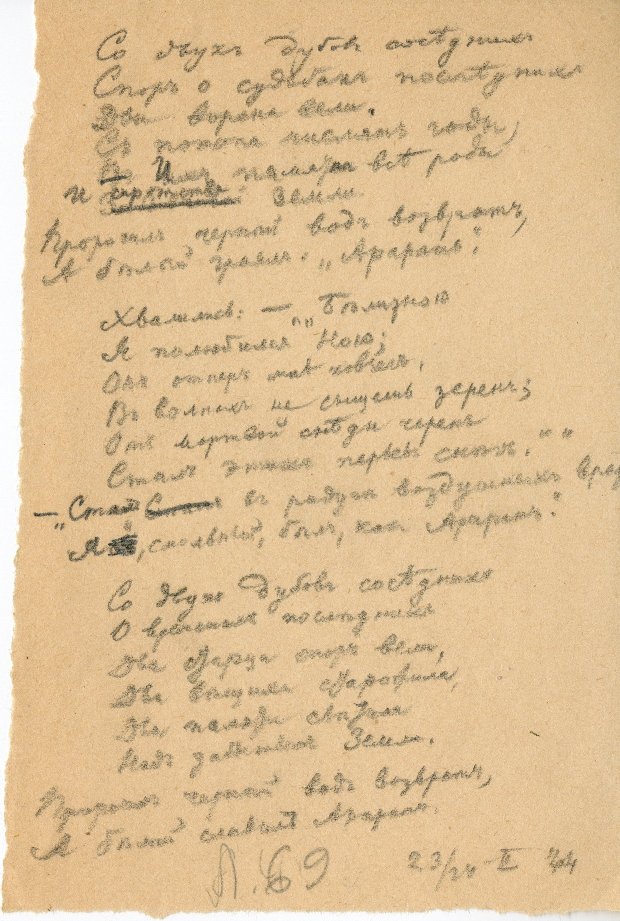 Со двухъ дубовъ сосѣднихъ
Споръ о судьбахъ послѣднихъ
Два ворона вели.
Съ потопа числятъ годы,
И Ихъ память всѣ роды
И Земли.
Пророчилъ черный водъ возвратъ,
А бѣлый граялъ: „Араратъ".
Хвалились: — „„Бѣлизною
Я полюбился Ною;
Онъ отперъ мнѣ ковчегъ.
Въ волнахъ не сыщешь зеренъ;
Отъ мертвой снѣди черенъ
Сталъ этихъ перьевъ снѣгъ.""
— „Сталъ въ радугѣ воздушныхъ вратъ
Я , снѣжный, бѣлъ, какъ Араратъ."
Со двухъ дубовъ сосѣднихъ
О временахъ послѣднихъ
Два старца споръ вели,
Два вѣщихъ старожила,
Два
Надъ Земли.
Пророчилъ черный водъ возвратъ,
А бѣлый славилъ Араратъ.
Л. 69 23/24 II 44